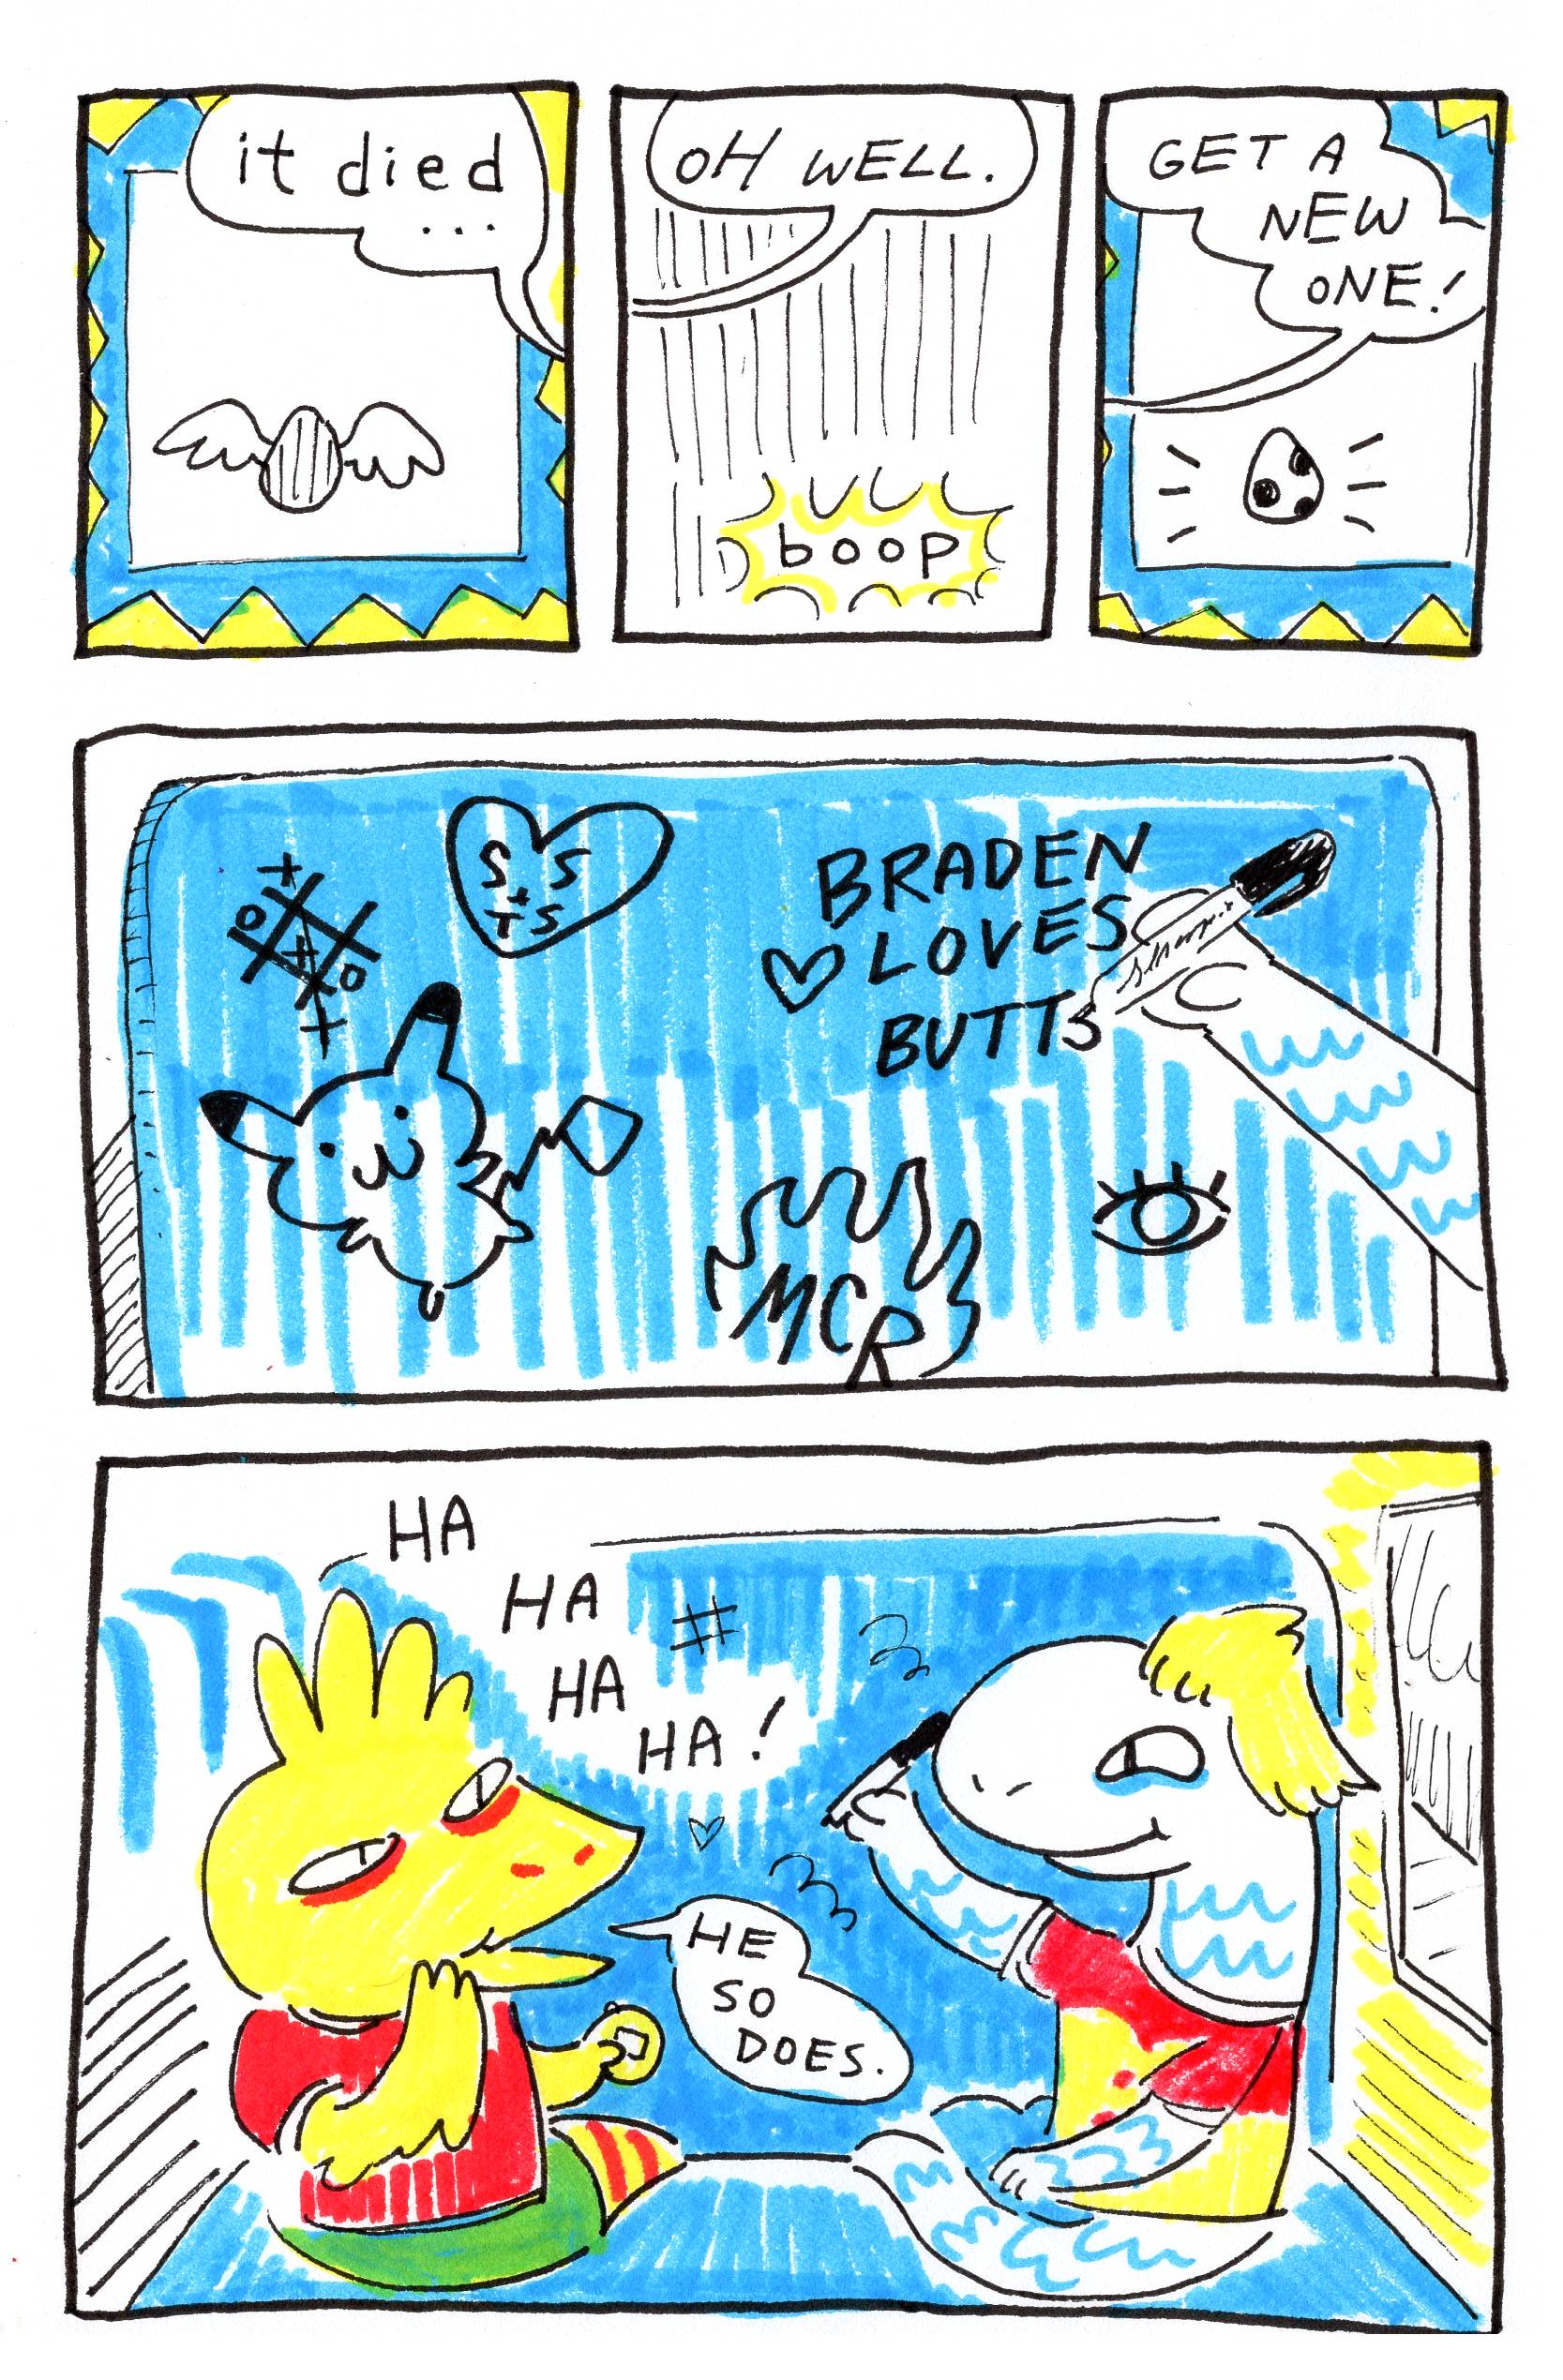 it died
...
OH WELL.
boop
GET A
NEW
ONE!
S S
+
T S
BRADEN
LOVES
BUTTS
Sharpie
MCR
HA
HA
HA
HA!
HE
SO
DOES.